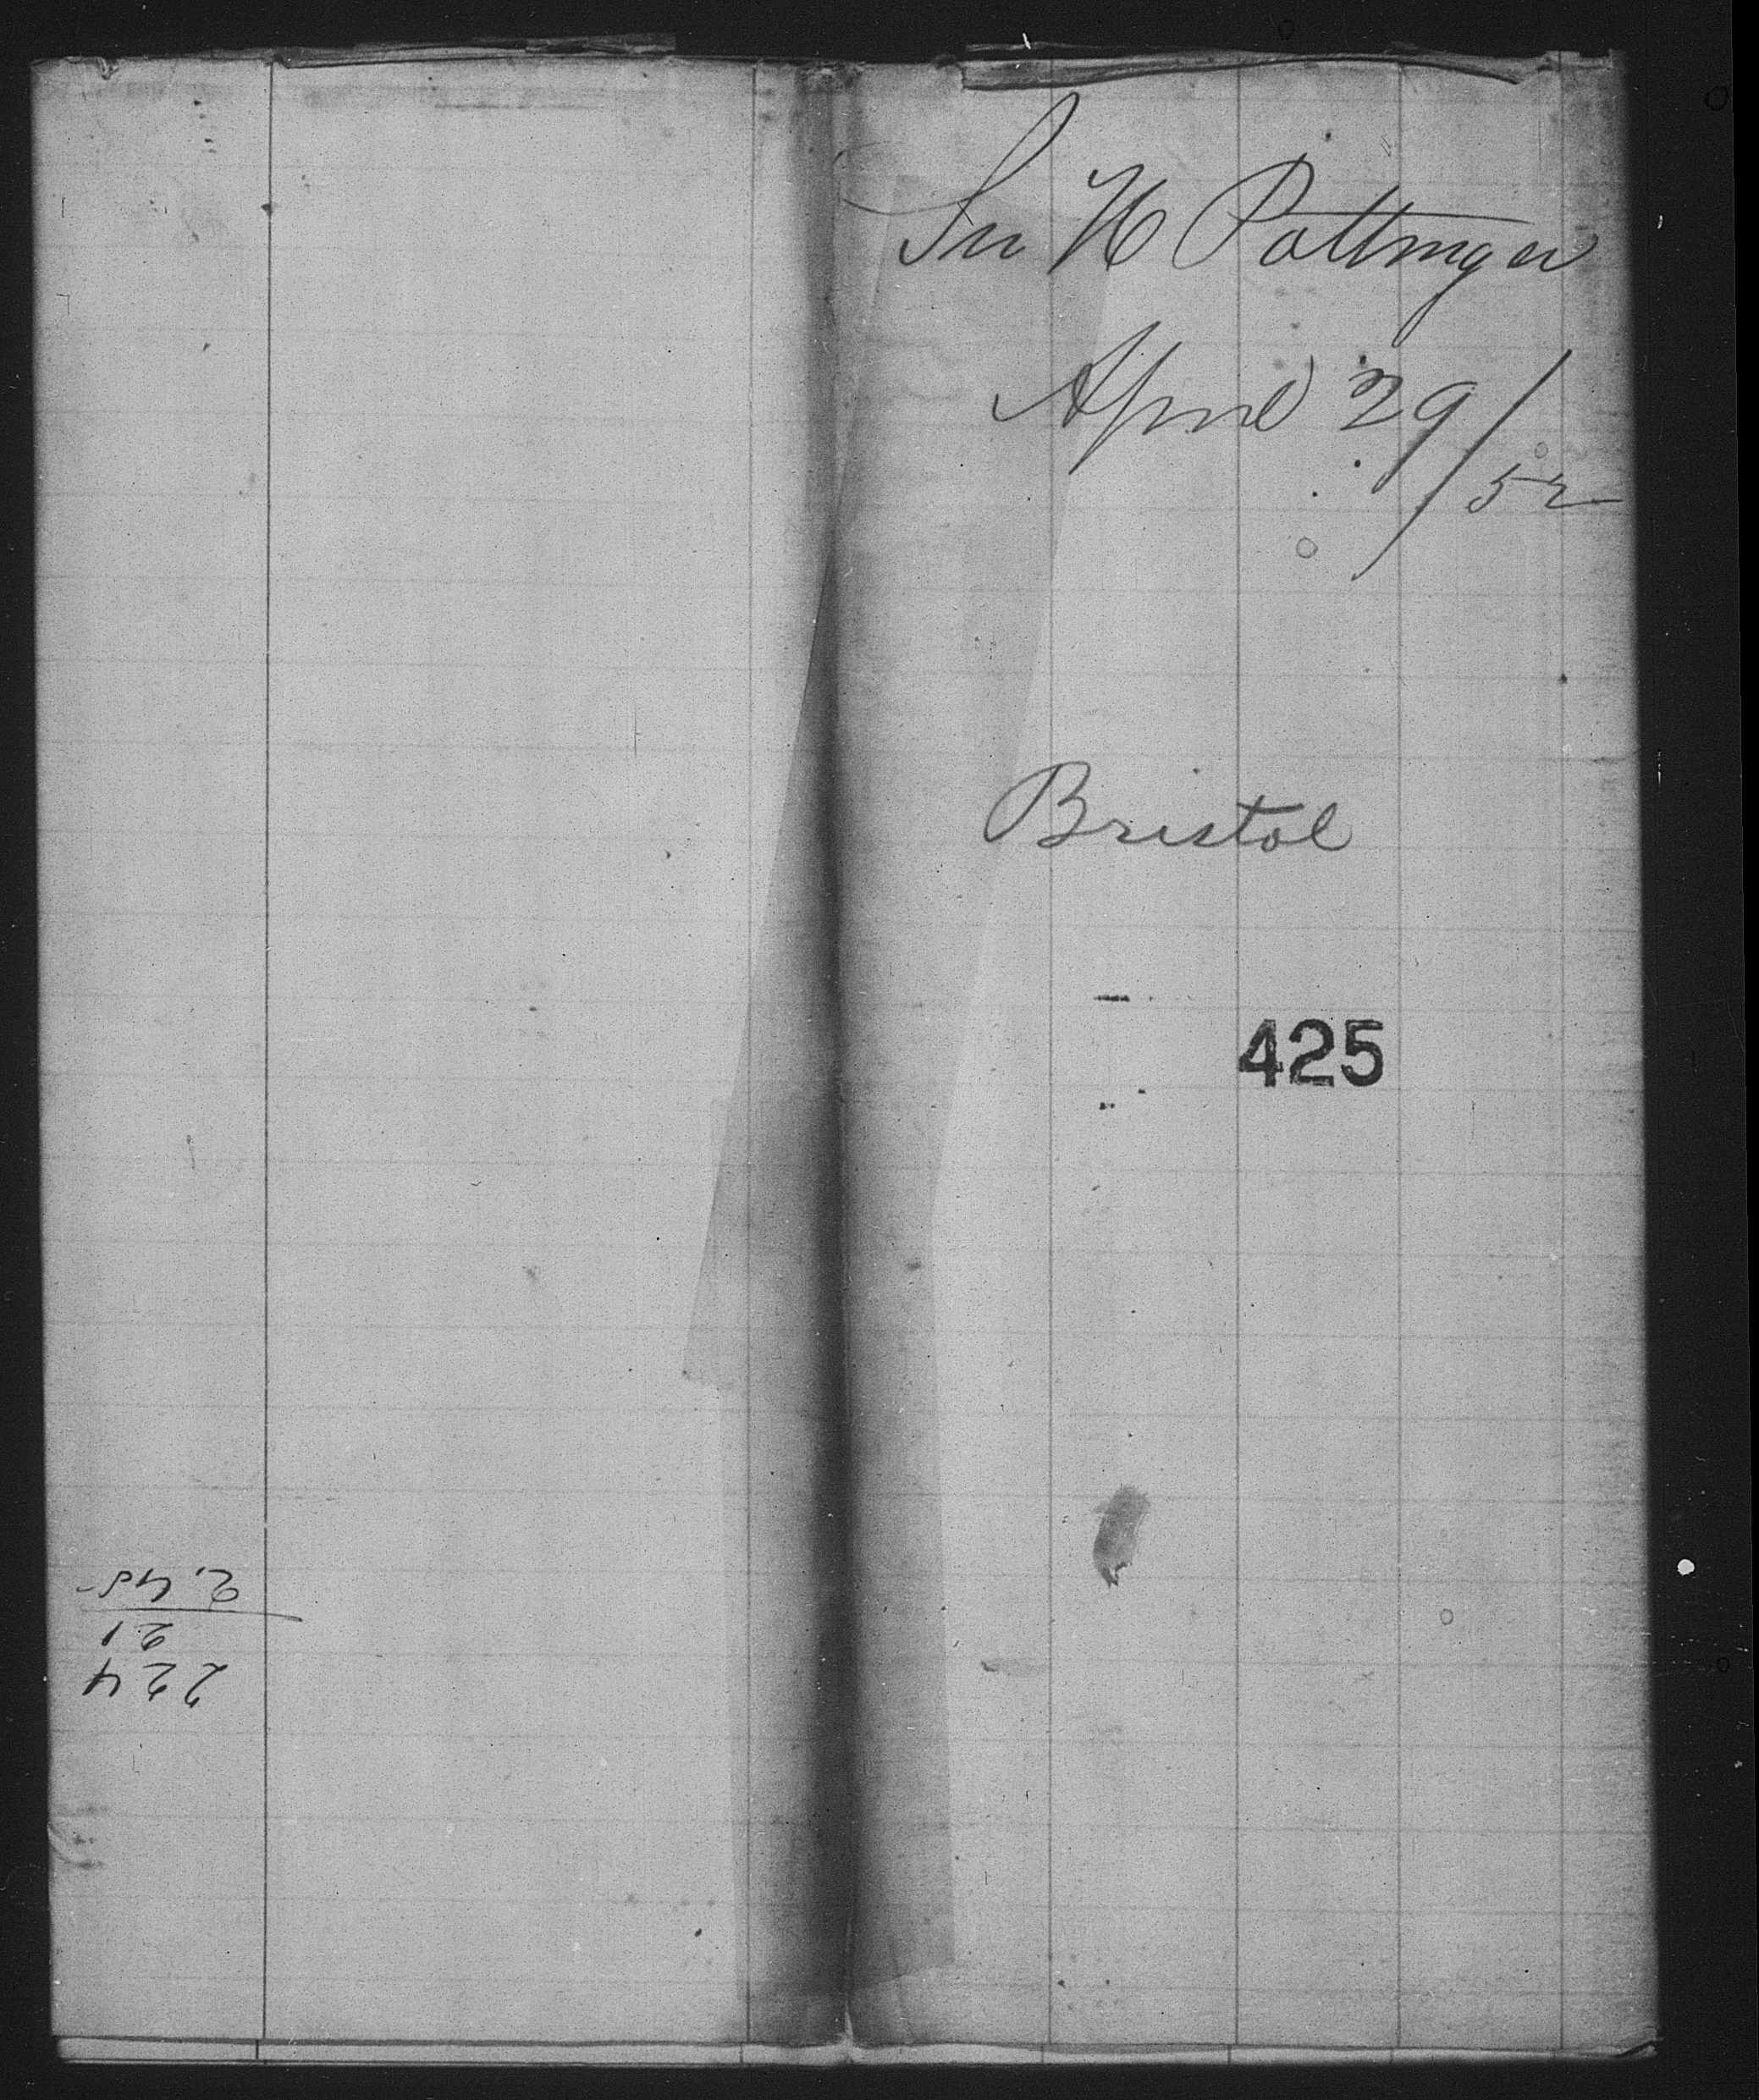 Sir H Pottinger
April 29/52
Bristol
425
224
21
2.45